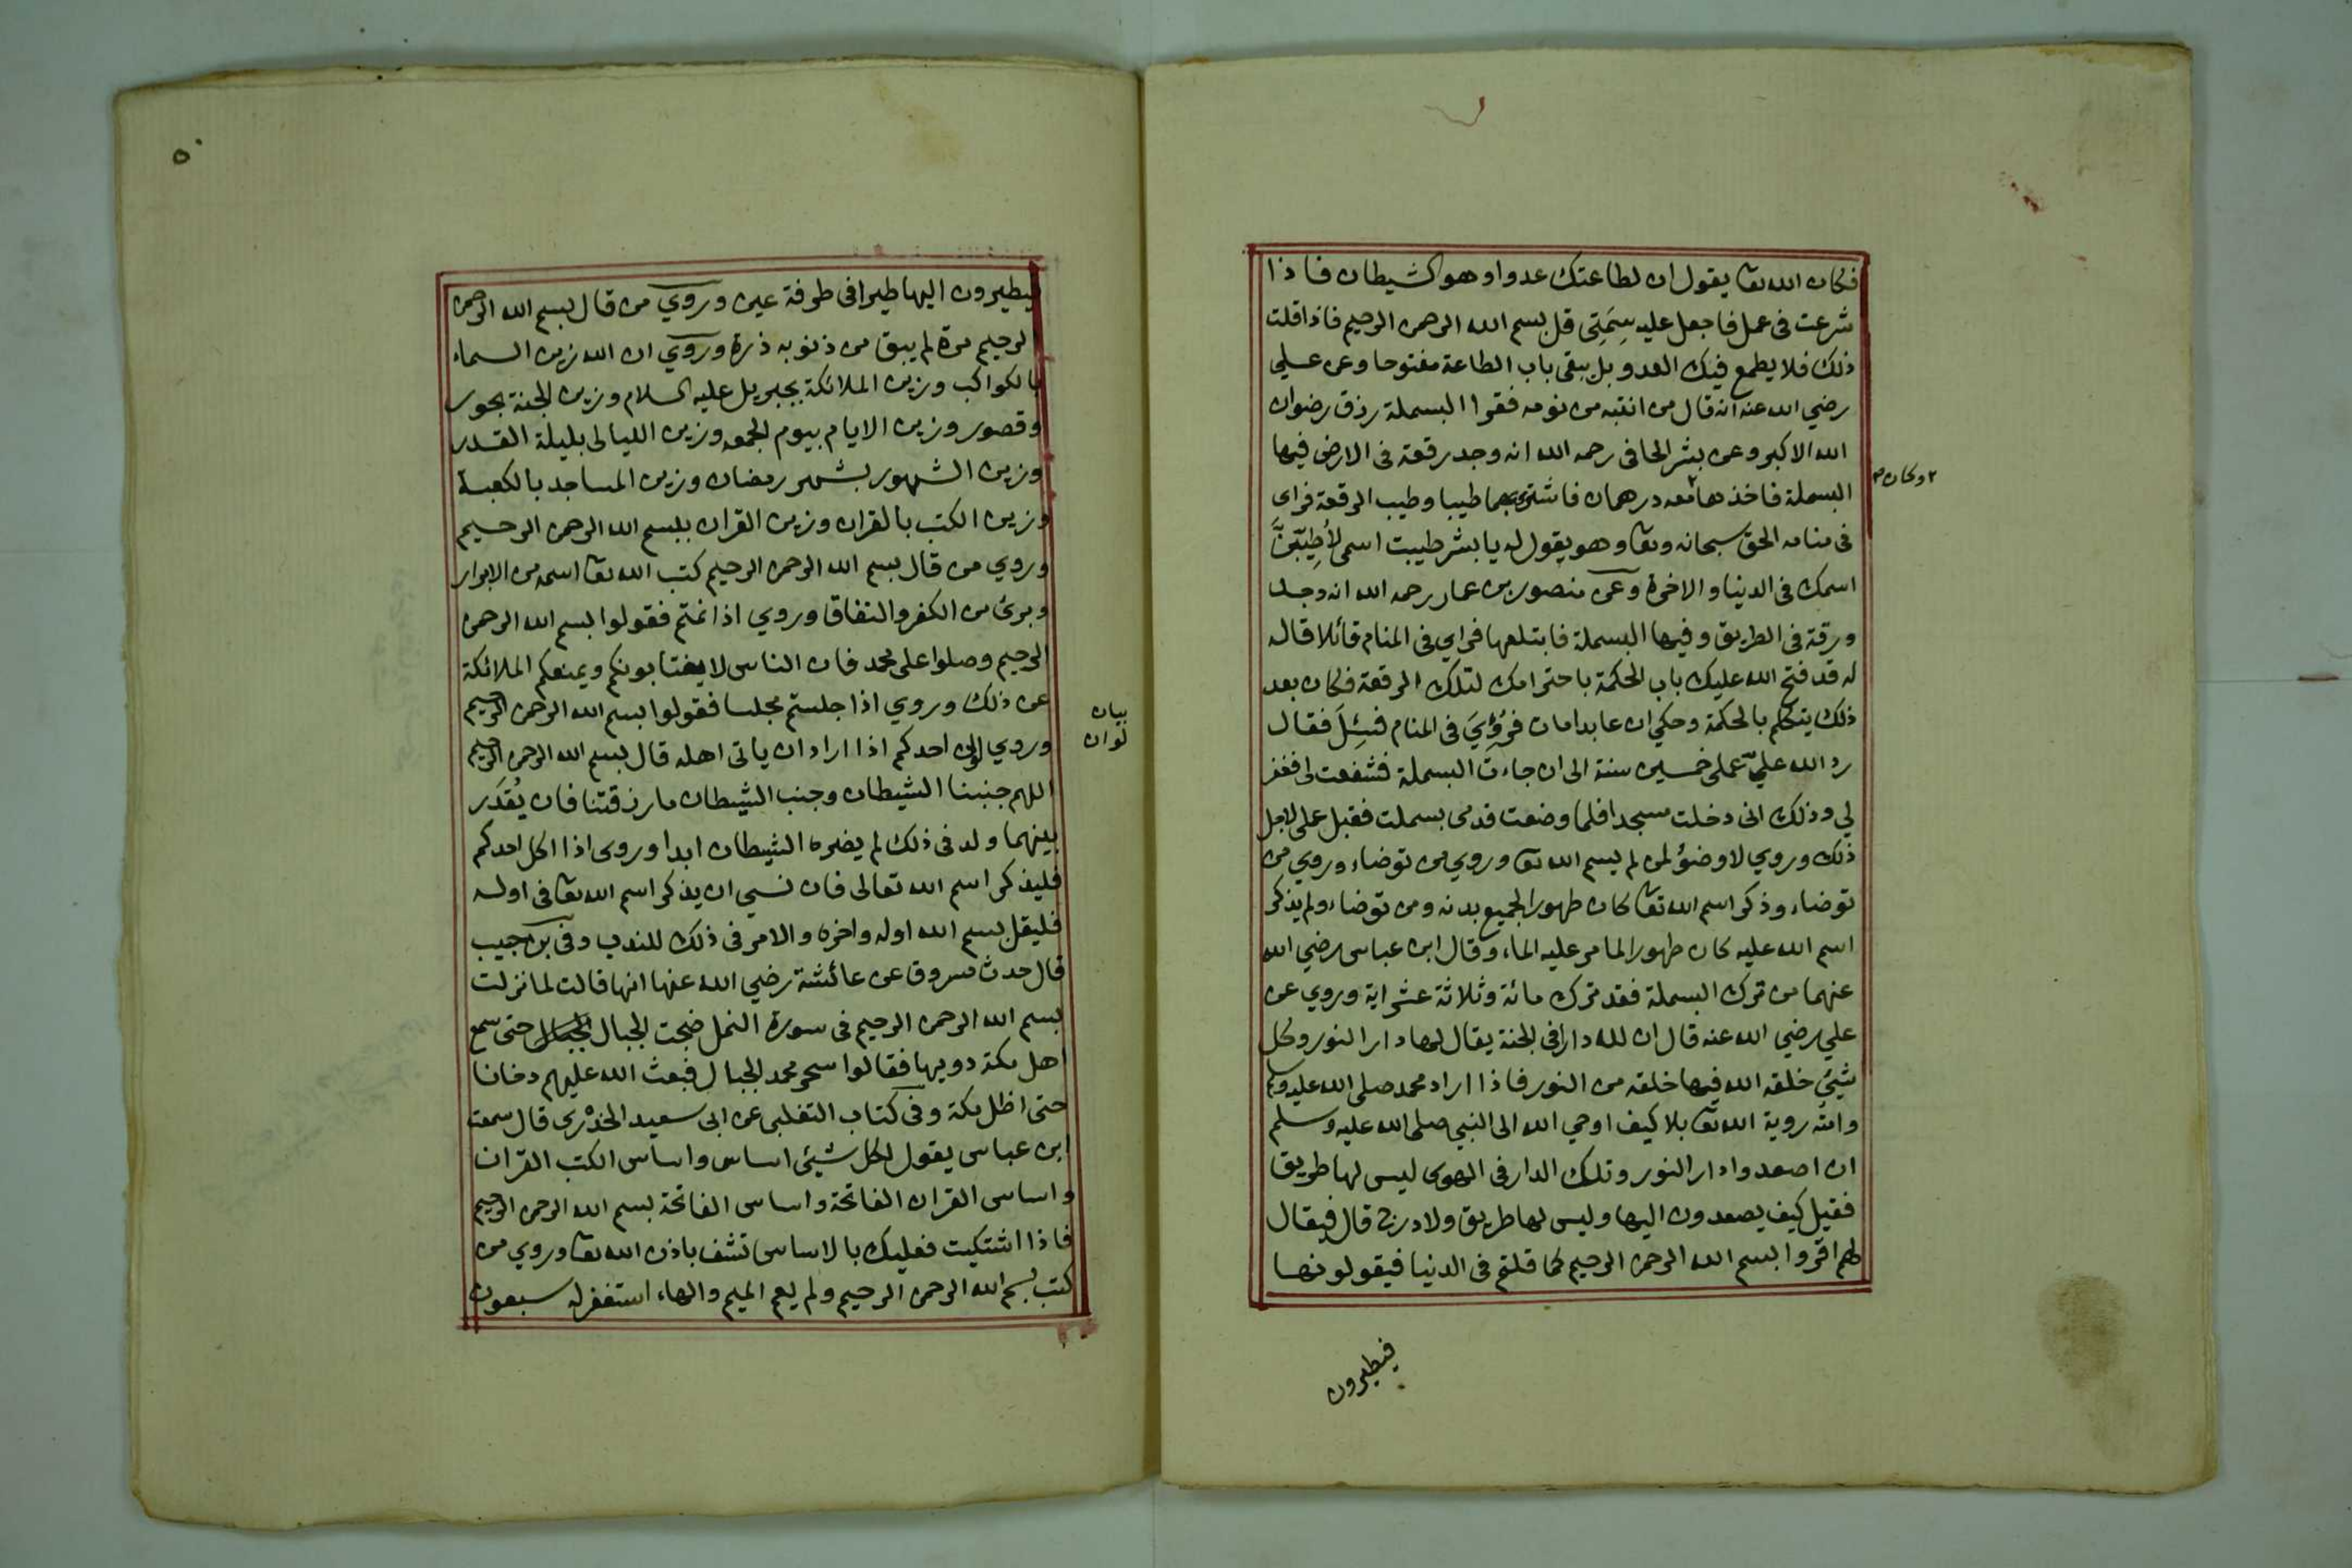 فكان الله تعا يقول ان لطاعتك عدوا وهو الشيطان فاذا
شرعت في عمل فاجعل عليه سِمَتِى قل بسم الله الرحمن الرحيم فاذا قلت
ذلك فلا يطمع فيك العدو بل يبقى باب الطاعة مفتوحا وعن علي
رضي الله عنه انه قال من انتبه من نومه فقرا البسملة رزق رضوان
الله الاكبر وعن بشر الحافى رحمه الله انه وجد رقعة في الارض فيها
البسملة فاخذها معه درهمان فاشترى بهما طيبا وطيب الرقعة فراى
وكان
في منامه الحق سبحانه وتعا وهو يقول له يا بشر طيبت اسمى لأُطيّبَنَّ
اسمك في الدنيا والاخرة وعن منصور بن عمار رحمه الله انه وجد
ورقة في الطريق وفيها البسملة فابتلعها فراي في المنام قائلا قال
له قد فتح الله عليك باب الحكمة باحترامك لتلك الرقعة فكان بعد
ذلك يتكلم بالحكمة وحكي ان عابدا مات فرُؤِيَ في المنام فسُئِلَ فقال
رد الله عليّ عملى خمسين سنة الى ان جاءت البسملة فشفعت لى فغفر
لي وذلك انى دخلت مسجدا فلما وضعت قدمى بسملت فقبل عملى لاجل
ذلك وروي لا وضؤ لمن لم يسم الله تعا وروي من توضاء وروي من
توضاء وذكر اسم الله تعا كان طهورا لجميع بدنه ومن توضاء ولم يذكر
اسم الله عليه كان طهورا لما مر عليه الماء وقال ابن عباس رضي الله
عنهما من ترك البسملة فقد ترك مائة وثلاثة عشر اية وروي عن
علي رضي الله عنه قال ان لله دارا في الجنة يقال لها دار النور وكل
شيئ خلقه الله فيها خلقه من النور فاذا اراد محمد صلى الله عليه وسلم
وامته روية الله تعا بلا كيف اوحي الله الى النبي صلى الله عليه وسلم
ان اصعدوا دار النور وتلك الدار في الهوى ليس لها طريق
فقيل كيف يصعدون اليها وليس لها طريق ولا درج قال فيقال
لهم اقروا بسم الله الرحمن الرحيم كما قلتم في الدنيا فيقولونها
فيطيرون
٥٠
فيطيرون اليها طيرا في طرفة عين وروي من قال بسم الله الرحمن
الرحيم مرة لم يبق من ذنوبه ذرة وروي ان الله زين السماء
بالكواكب وزين الملائكة بجبريل عليه السلام وزين الجنة بحور
وقصور وزين الايام بيوم الجمعه وزين الليالى بليلة القدر
وزين الشهور بشهر رمضان وزين المساجد بالكعبة
وزين الكتب بالقران وزين القران ببسم الله الرحمن الرحيم
وروي من قال بسم الله الرحمن الرحيم كتب الله تعا اسمه من الابرار
وبرئ من الكفر والنفاق وروي اذا نمتم فقولوا بسم الله الرحمن
الرحيم وصلوا على محمد فان الناس لا يغتابونكم ويمنعكم الملائكة
عن ذلك وروي اذا جلستم مجلسا فقولوا بسم الله الرحمن الرحيم
بيان
لو ان
وروي احدكم اذا اراد ان ياتى اهله قال بسم الله الرحمن الرحيم
اللهم جنبنا الشيطان وجنب الشيطان ما رزقتنا فان يُقَدَر
بينهما ولد في ذلك لم يضره الشيطان ابدا وروى اذا اكل احدكم
فليذكر اسم الله تعالى فان نسي ان يذكر اسم الله تعا في اوله
فليقل بسم الله اوله واخره والامر في ذلك للندب وفي
قال حدث مسروق عن عائشة رضي الله عنها انها قالت لما نزلت
بسم الله الرحمن الرحيم في سورة النمل ضجت الجبال حتى سمع
اهل مكة دويها فقالوا سحر محمد الجبال فبعث الله عليهم دخانا
حتى اظل مكة وفي كتاب التغلبى عن ابى سعيد الخدْرى قال سمعت
ابن عباس يقول لكل شيئ اساس واساس الكتب القران
واساس القران الفاتحة واساس الفاتحة بسم الله الرحمن الرحيم
فاذا اشتكيت فعليك بالاساس تشف باذن الله تعا وروي من
كتب بسم الله الرحمن الرحيم ولم يعم الميم والهاء استغفر له سبعون